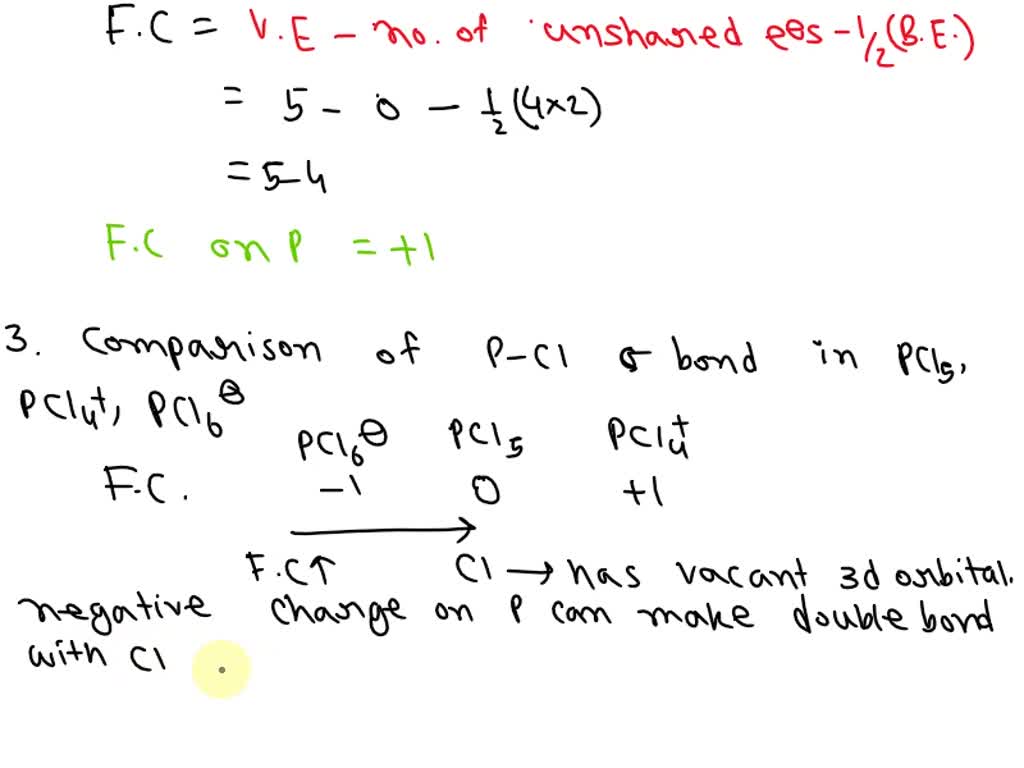 F.C = V.E - no. of unshared e⊖s - 1/2 (B.E.)
= 5 - 0 - 1/2 (4×2)
= 5-4
F.C on P = +1
3. Comparison of P-Cl σ bond in PCl5,
PCl4+, PCl6⊖
PCl6⊖ PCl5 PCl4+
F.C. -1 0 +1
→
F.C↑ Cl → has vacant 3d orbital.
negative charge on P can make double bond
with Cl